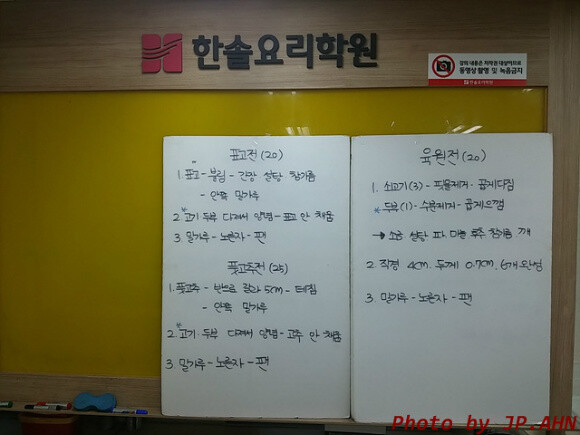 한솔요리학원
강의 내용은 저작권 대상이므로
동영상 촬영 및 녹음금지
한솔요리학원
표고전 (20)
1. 표고 - 불림 - 간장 설탕 참기름
- 안쪽 밀가루
2. 고기 두부 다져서 양념 - 표고 안 채움
3. 밀가루 - 노른자 - 팬
풋고추전 (25)
1. 풋고추 - 반으로 갈라 5cm - 데침
- 안쪽 밀가루
2. 고기 두부 다져서 양념 - 고추 안 채움
3. 밀가루 - 노른자 - 팬
육원전 (20)
1. 쇠고기 (3) - 핏물제거 - 곱게다짐
* 두부 (1) - 수분제거 - 곱게으깸
→ 소금 설탕 파 마늘 후추 참기름 깨
2. 직경 4cm. 두께 0.7cm. 6개 완성
3. 밀가루 - 노른자 - 팬
Photo by JP.AHN